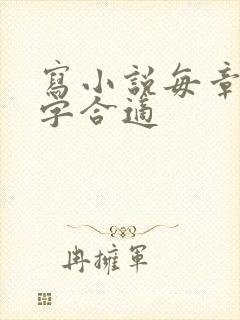 寫小說每章
字合適
冉擁軍